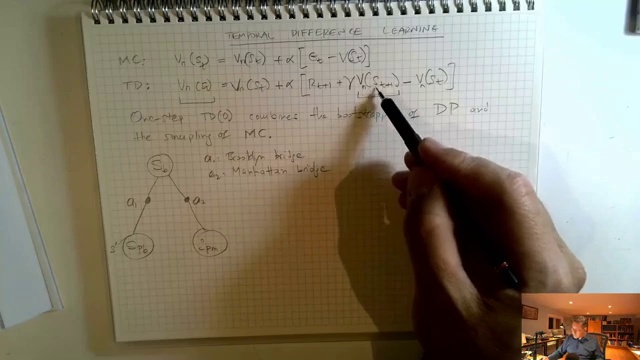 TEMPORAL DIFFERENCE LEARNING
MC: Vπ(St) = Vπ(St) + α [Gt − V(St)]
TD: Vπ(s) = Vπ(St) + α [Rt+1 + γ Vπ(St+1) − Vπ(St)]
One-step TD(0) combines the of DP and
the sampling of MC.
a1: Brooklyn bridge
a2: Manhattan bridge
Sb
a1 a2
s' Spb Spm